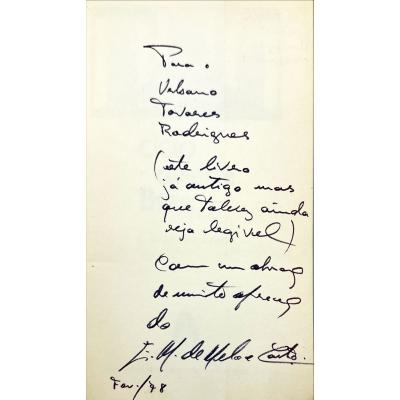 Para o
Urbano
Tavares
Rodrigues
(este livro
já antigo mas
que talvez ainda
seja legível)
Com um abraço
de muito apreço
do
E. M. de Melo e Castro.
Fev./78